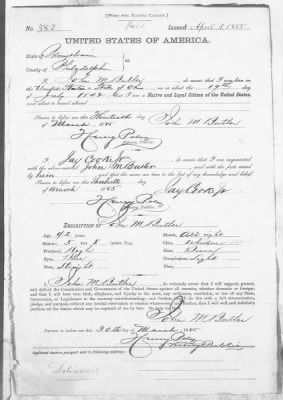 [FORM FOR NATIVE CITIZEN.]
No. 382 Issued April 1, 1885
UNITED STATES OF AMERICA.
State of Pennsylvania
County of Philadelphia
I, John M Butler do swear that I was born in the
State of Ohio on the 19th day
of July 1842 that I am a Native and Loyal Citizen of the United States,
and about to travel abroad
Sworn to before me this Thirtieth day
of March 1885 John M Butler
Henry
Notary Public
I, Jay Cooke Jr do swear that I am acquainted
with the above-named John M Butler and with the facts stated
by him and that the same are true to the best of my knowledge and belief.
Sworn to before me this Thirtieth day
of March 1885 Jay Cooke Jr
Henry
DESCRIPTION OF John M. Butler
Age, 42 years Mouth, All right
Stature, 5 8 inches, Eng. Chin,
Forehead, High Hair, Brown
Eyes, Blue Complexion, Light
Nose, Straight Face,
I, John M Butler do solemnly swear that I will support, protect,
and defend the Constitution and Government of the United States against all enemies, whether domestic or foreign;
and that I will bear true faith, allegiance, and loyalty to the same, any ordinance, resolution, or law of any State,
Convention, or Legislature to the contrary notwithstanding; and further, that I do this with a full determination,
pledge, and purpose, without any mental reservation or evasion whatsoever; and, further, that I will well and faithfully
perform all the duties which may be required of me by law. So help me God.
John M Butler
Sworn to before me this 30th day of March 1885
Henry
Notary Public
Applicant desires passport sent to following address:
Delivered